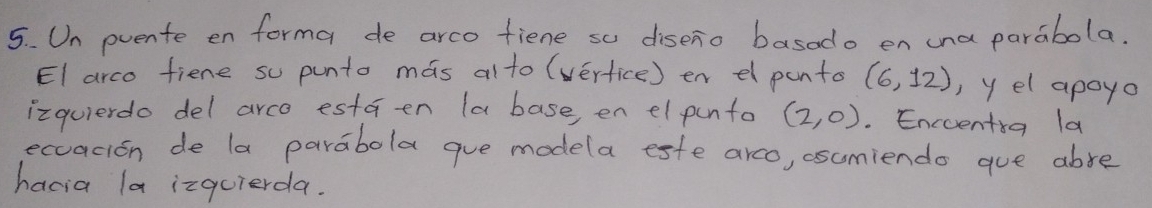 5.- Un puente en forma de arco tiene su diseño basado en una parábola.
El arco tiene su punto más alto (vértice) en el punto (6,12), y el apoyo
izquierdo del arco está en la base, en el punto (2,0). Encuentra la
ecuación de la parábola que modela este arco, asumiendo que abre
hacia la izquierda.